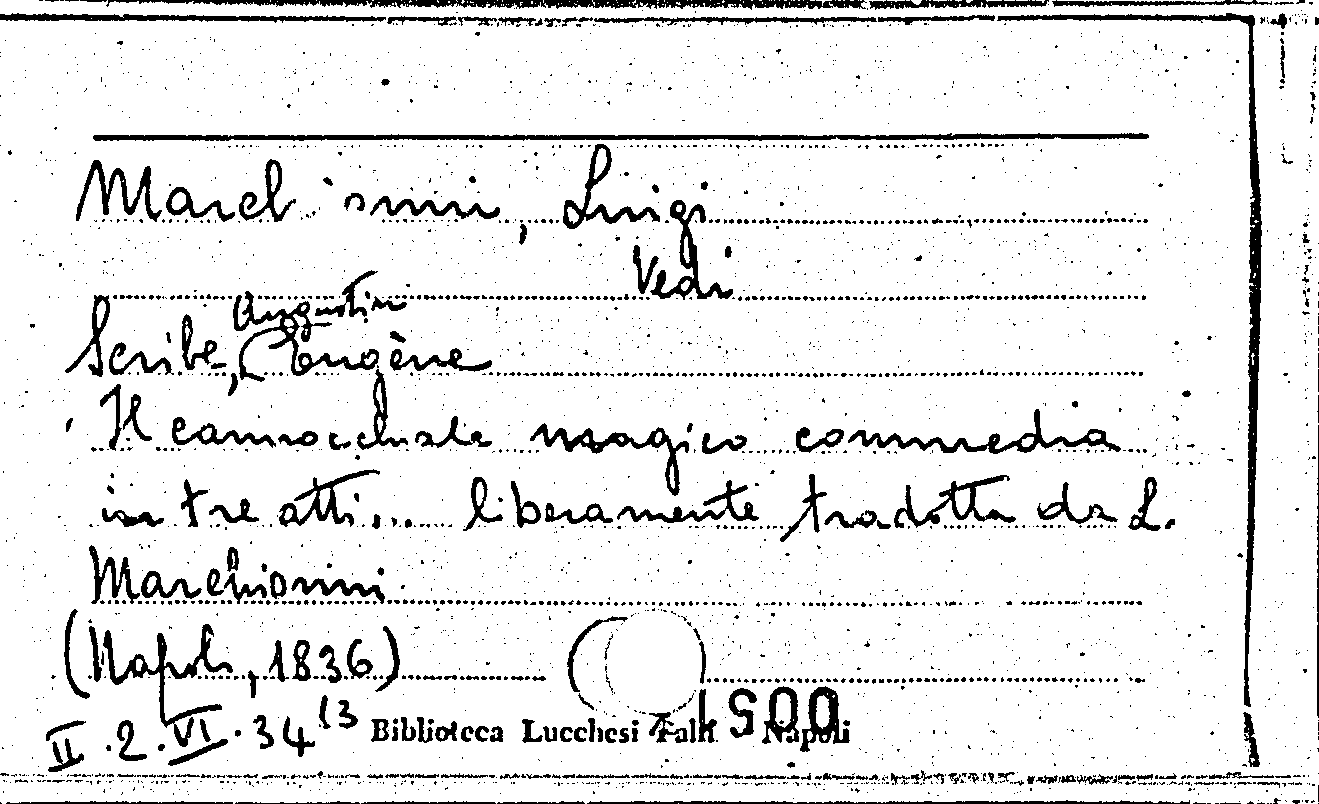 Marchionni, Luigi
Vedi
Augustin
Scribe, Eugène
Il cannocchiale magico commedia
in tre atti... liberamente tradotta da L.
Marchionni
(Napoli, 1836)
II.2.VI.34 13
Biblioteca Lucchesi Palli Napoli